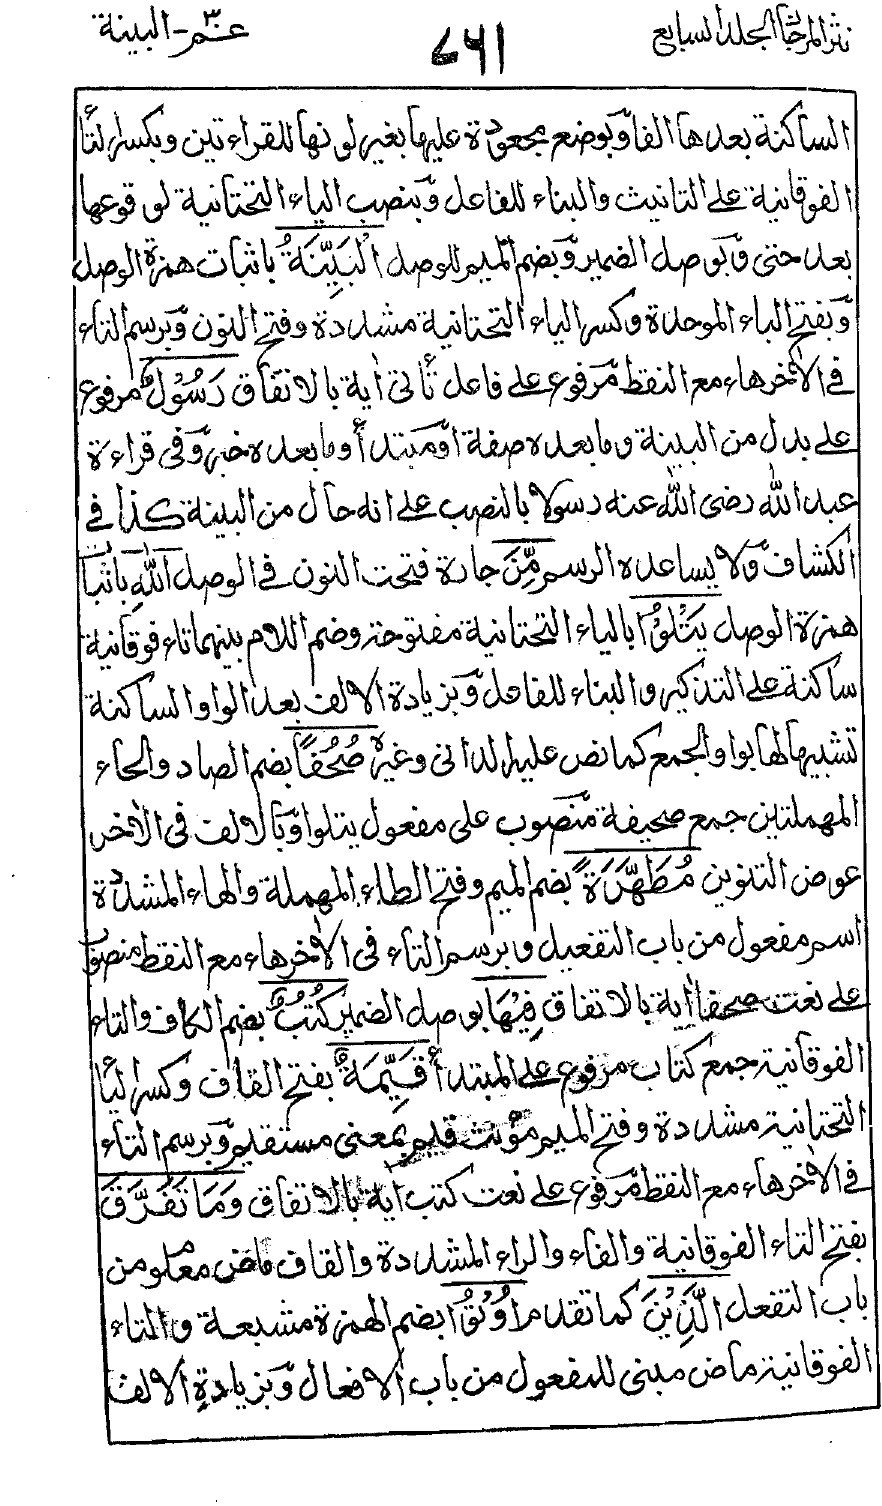 نثر المرجان المجلد السابع
٧٦١
عم٣-البينة
الساكنة بعدها الفا وبوضع مجعودة عليها بغير لونها للقراءتين وبكسر التاء
الفوقانية على التانيث والبناء للفاعل وبنصب الياء التحتانية لوقوعها
بعد حتى وبوصل الضمير وبضم الميم للوصل الْبَيِّنَةُ باثبات همزة الوصل
وبفتح الباء الموحدة وكسر الياء التحتانية مشددة وفتح النون وبرسم التاء
في الاخر هاء مع النقط مرفوع على فاعل تأتي اية بالاتفاق رَسُوْلٌ مرفوع
على بدل من البينة وما بعده صفة او مبتدأ وما بعده خبر وفى قراءة
عبد الله رضى الله عنه رسولا بالنصب على انه حال من البينة كذا في
الكشاف ولا يساعده الرسم مِّنَ جارة فتحت النون في الوصل اللّٰهِ باثبات
همزة الوصل يَتْلُوْا بالياء التحتانية مفتوحة وضم اللام بينهما تاء فوقانية
ساكنة على التذكير والبناء للفاعل وبزيادة الالف بعد الواو الساكنة
تشبيها لها بواو الجمع كما نص عليه الدانى وغيره صُحُفًا بضم الصاد والحاء
المهملتين جمع صحيفة منصوب على مفعول يتلوا وبالالف فى الاخر
عوض التنوين مُطَهَّرَةً بضم الميم وفتح الطاء المهملة والهاء المشددة
اسم مفعول من باب التفعيل وبرسم التاء فى الاخر هاء مع النقط منصوب
على نعت صحفا اية بالاتفاق فِيْهَا بوصل الضمير كُتُبٌ بضم الكاف والتاء
الفوقانية جمع كتاب مرفوع على المبتدأ قَيِّمَةٌ بفتح القاف وكسر الياء
التحتانية مشددة وفتح الميم مؤنث قيم بمعنى مستقيم وبرسم التاء
في الاخر هاء مع النقط مرفوع على نعت كتب اية بالاتفاق وَمَا تَفَرَّقَ
بفتح التاء الفوقانية والفاء والراء المشددة والقاف ماض معلوم من
باب التفعل الَّذِيْنَ كما تقدم اُوْتُوا بضم الهمزة مشبعة والتاء
الفوقانية ماض مبنى للمفعول من باب الافعال وبزيادة الالف